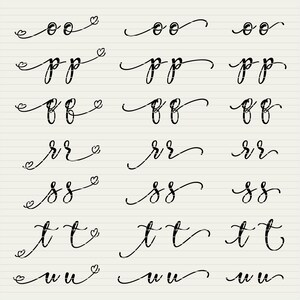 oo oo oo
pp pp pp
qq qq qq
rr rr rr
ss ss ss
tt tt tt
uu uu uu